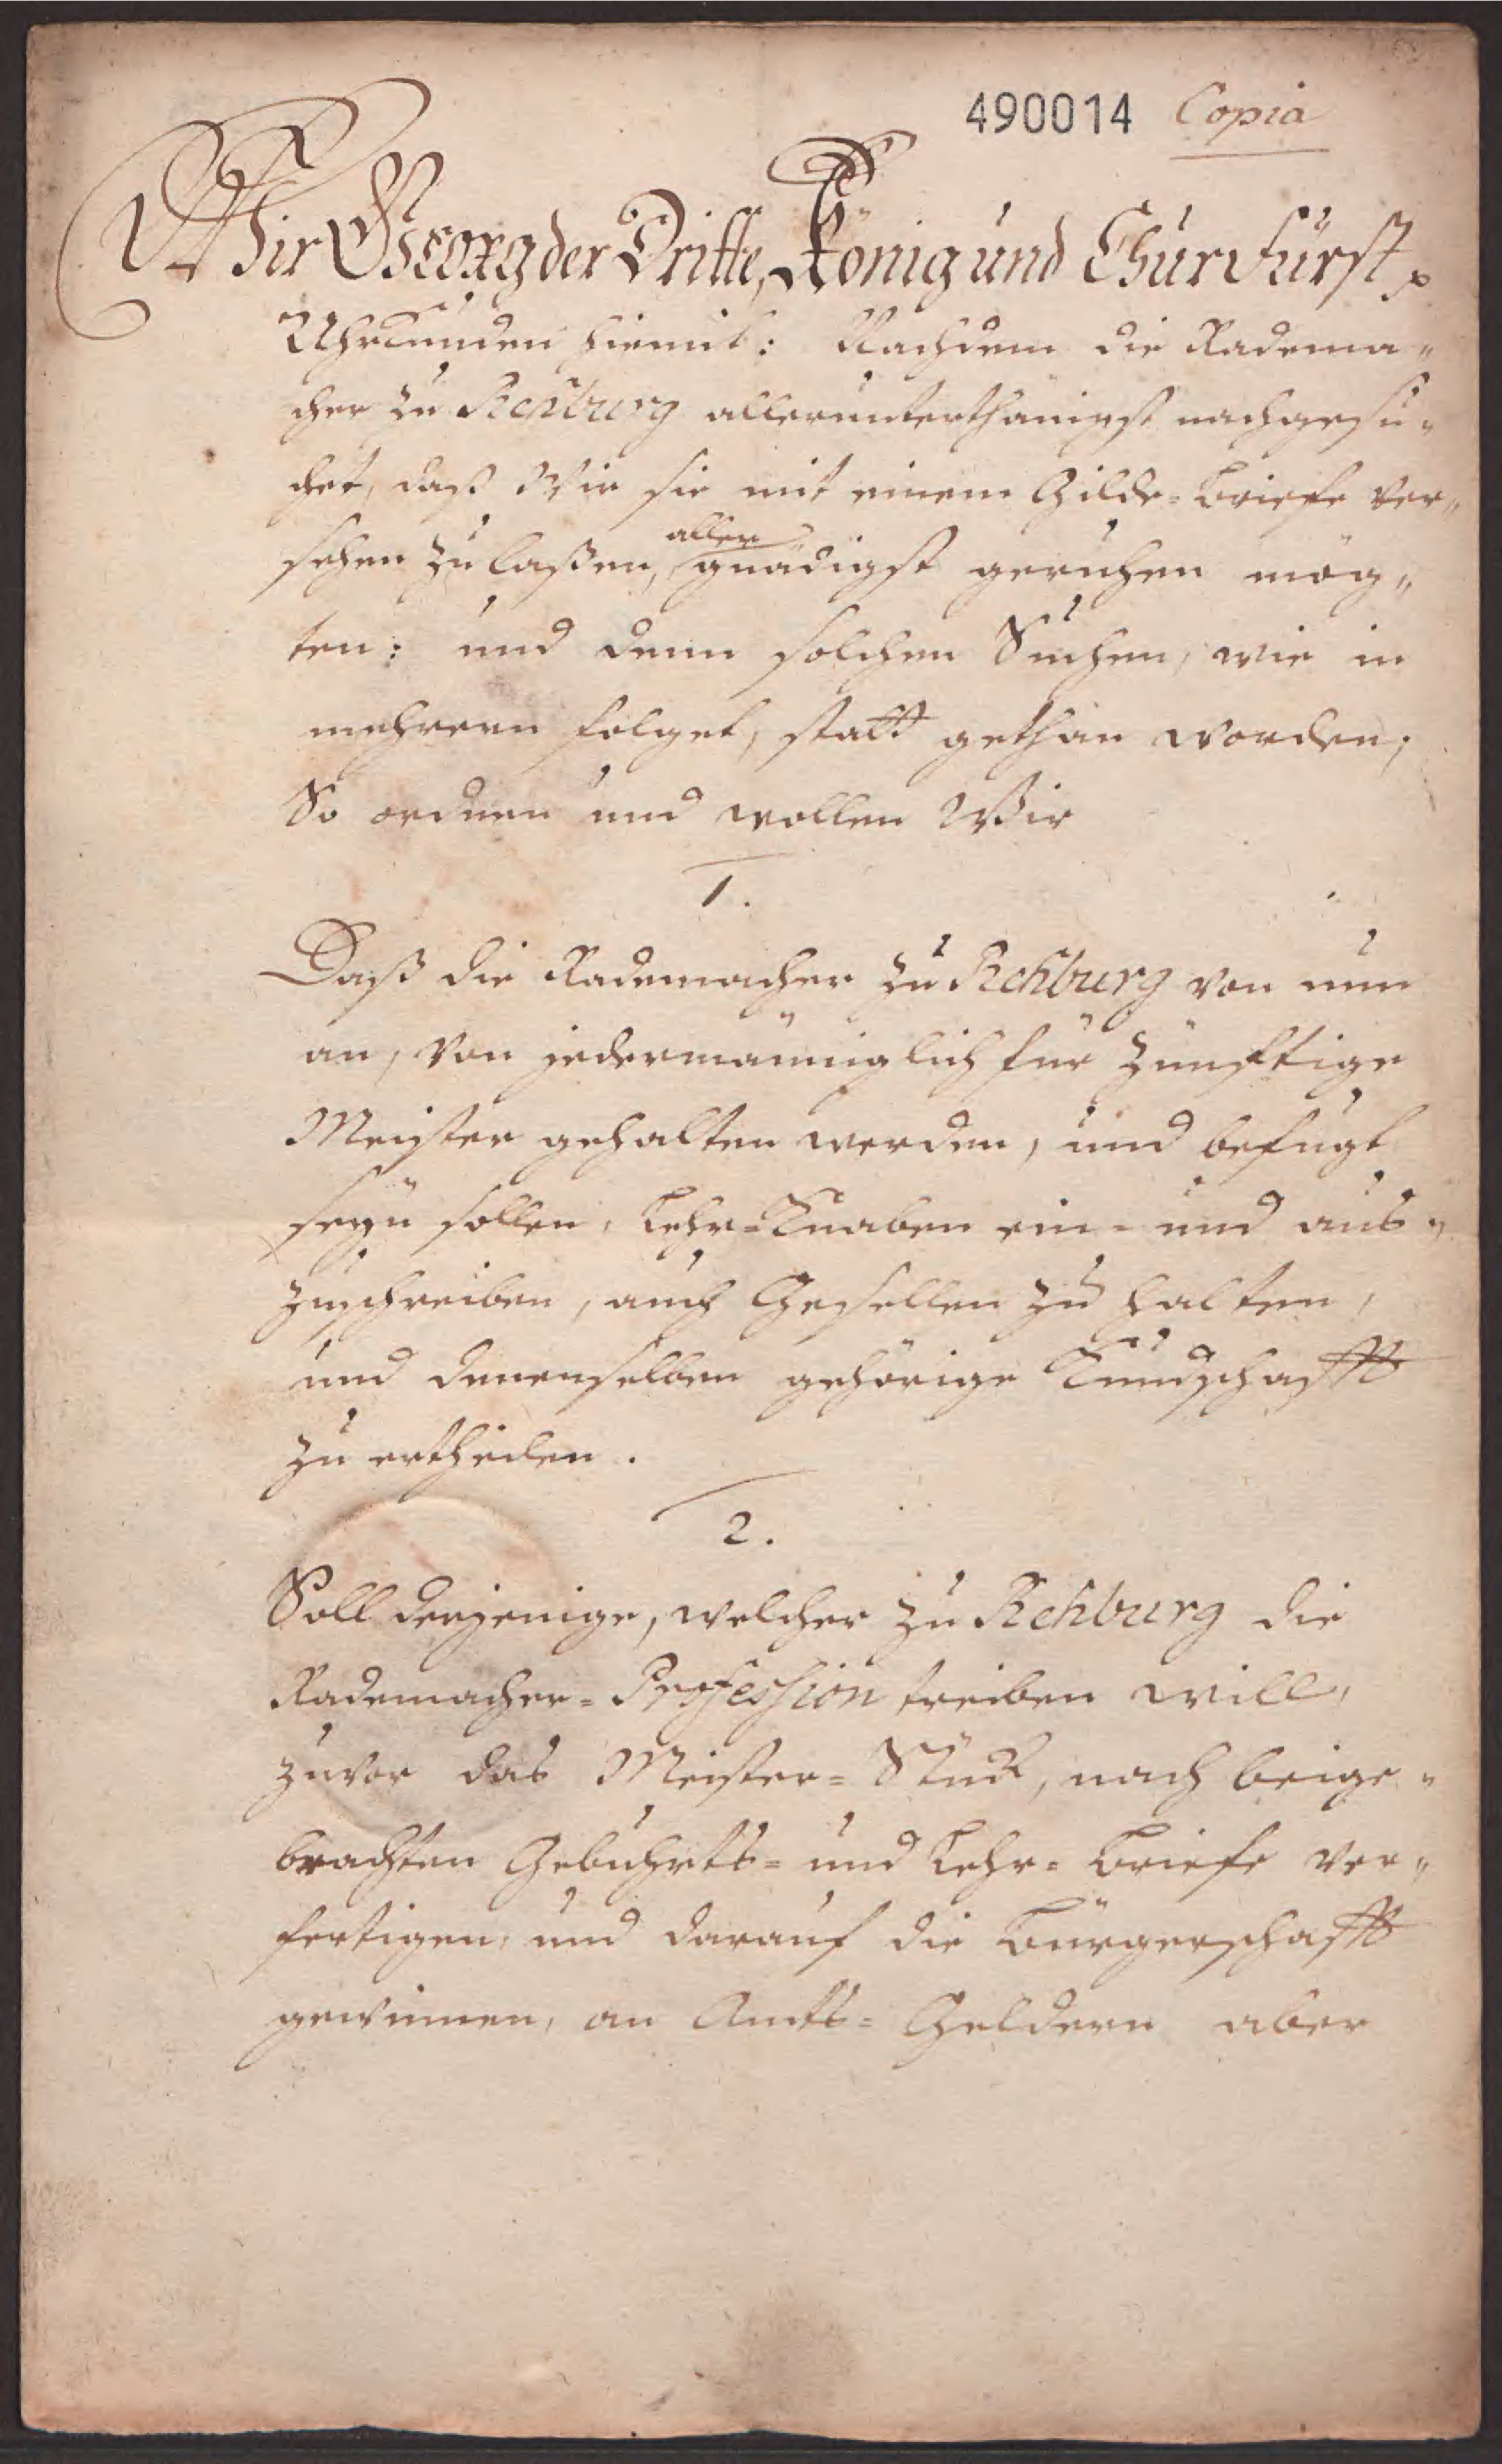 490014 Copia
Wir Georg der Dritte, König und Churfürst p
Uhrkunden hiemit: Nachdem die Radema„
cher zu Rehburg allerunterthänigst nachgesu„
chet, daß Wir sie mit einem Gilde-Briefe ver„
sehen zu laßen, aller
gnädigst geruhen mög„
ten: und denn solchen Suchen, wie in
mehrern folget, statt gethan worden;
So ordnen und wollen Wir
1.
Daß die Rademacher zu Rehburg von nun
an, von jedermänniglich für zünftige
Meister gehalten werden, und befugt
seyn sollen, Lehr-Knaben ein- und aus„
zuschreiben, auch Gesellen zu halten,
und denenselben gehörige Kundschafft
zu ertheilen.
2.
Soll derjenige, welcher zu Rehburg die
Rademacher-Profession treiben will,
zuvor das Meister-Stück, nach beige„
brachten Gebuhrts- und Lehr-Briefe ver„
fertigen, und darauf die Bürgerschafft
gewinnen, an Amts-Geldern aber